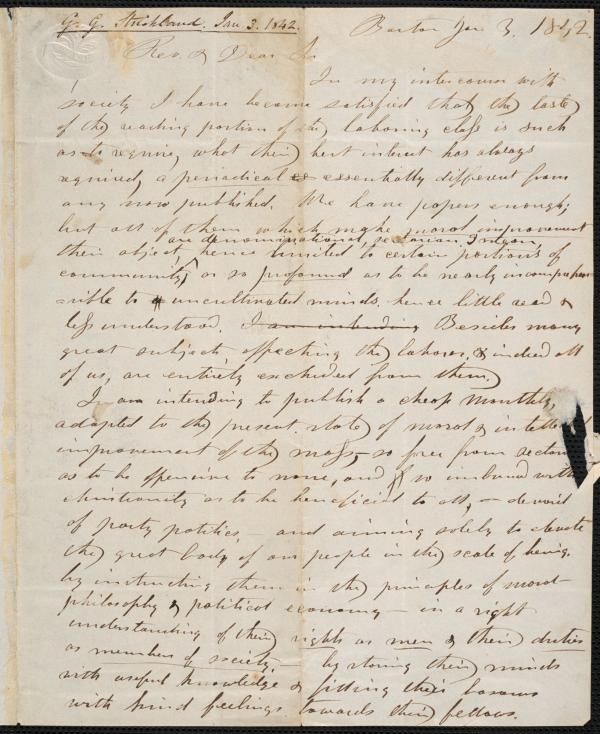 G. G. Strickland. Jan. 3. 1842.
Boston Jan 3. 1842.
Rev. & Dear Sir
In my intercourse with
society I have become satisfied that the taste
of the reading portion of the laboring class is such
as to require, what their best interest has always
required, a periodical essentially different from
any now published. We have papers enough;
but all of them which make moral improvement
are denominational, sectarian, I mean,
their object, hence limited to certain portions of
community, or so profound as to be nearly incomprehen-
sible to uncultivated minds, hence little read &
less understood. I am intending Besides many
great subjects, affecting the laborer, & indeed all
of us, are entirely excluded from them.
I am intending to publish a cheap Monthly,
adapted to the present state of moral &
improvement of the mass,—so free from
as to be offensive to none, and so imbued with
christianity as to be beneficial to all,— devoid
of party politics,— and aiming solely to elevate
the great body of our people in the scale of being,
by instructing them in the principles of moral
philosophy & political economy— in a right
understanding of their rights as men & their duties
as members of society,— by storing their minds
with useful knowledge & fitting their bosoms
with kind feelings towards their fellows.